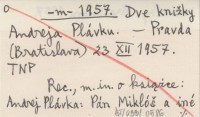 -m- 1957. Dve knižky
Andreja Plávku. – Pravda
(Bratislava) 23 XII 1957.
TNP
Rec., m.in. o książce:
Andrej Plávka: Pán Miklóš a iné